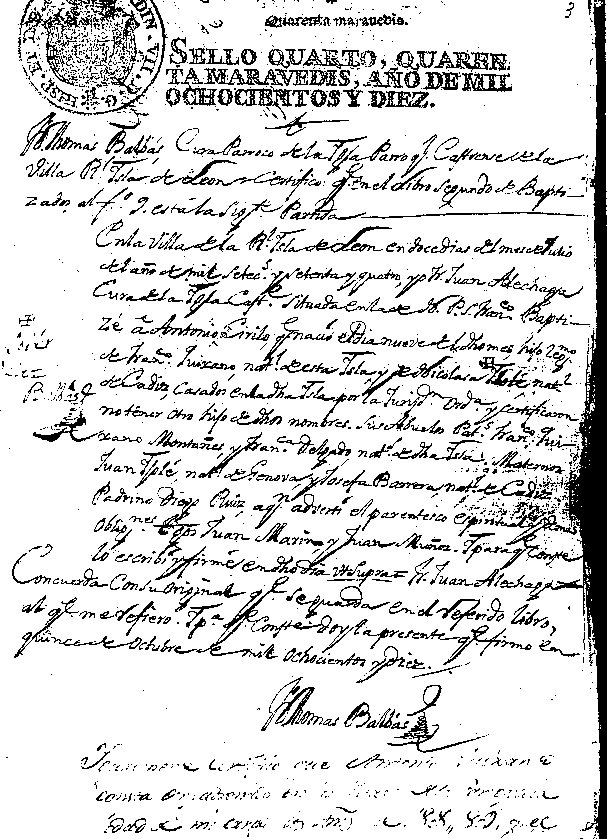 3
Quarenta maravedis.
SELLO QUARTO, QUAREN
TA MARAVEDIS, AÑO DE MIL
OCHOCIENTOS Y DIEZ.
Fr. Thomas Balbás Cura Parroco de la Ygla Parroql. Castrense de la
Villa Rl. Isla de Leon Certifico: qe. en el Libro Segundo de Bapti-
zados, al fo. 9. está la Sigte. Partida
En la Villa de la Rl. Isla de Leon en doce dias del mes de Julio
del año de mil setecs. y setenta y quatro, yo Fr. Juan Alechaga
Cura de la Ygla Cast. Situada en la de N. P. S. Franco. Bapti-
zé a Antonio Cirilo qe. nació el dia nueve de dho mes, hijo legmo.
de Franco. Quixano natl. de esta Isla y de Nicolasa natl.
de Cadiz, Casados en la dha Isla por la Jurisdn. Orda. y certificaron
no tener otro hijo de dhos nombres. Sus Abuelos Pats. Franco. Qui-
xano Montañes, y Franca. Delgado natl. de dha Isla. Maternos
Juan natl. de Genova y Josefa Barrera, natl. de Cadiz
Padrino Diego Ruiz, aqn. advertí el parentesco espiritual y
Obligns. Tgos Juan Marin, y Juan Muñoz. Y para qe. Conste
lo escribi y firmé en dho dia Ut Supra = Fr. Juan Alechaga
Concuerda Con su Original qe. se guarda en el referido libro,
al qe. me refiero. Y pa. qe. Conste doy la presente qe. firmo en
quince de Octubre de mil ochocientos y diez.
Fr. Thomas Balbás
certifico que Antonio Quixano